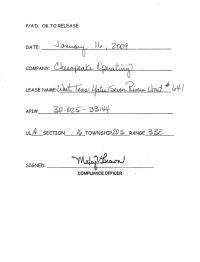 P/A'D. OK TO RELEASE
DATE: January 16, 2009
COMPANY: Chesapeake Operating
LEASE NAME: West Teas Yates/Seven Rivers Unit #641
API# 30-025-33144
UL A SECTION 16 TOWNSHIP 20S RANGE 33E
SIGNED:
COMPLIANCE OFFICER